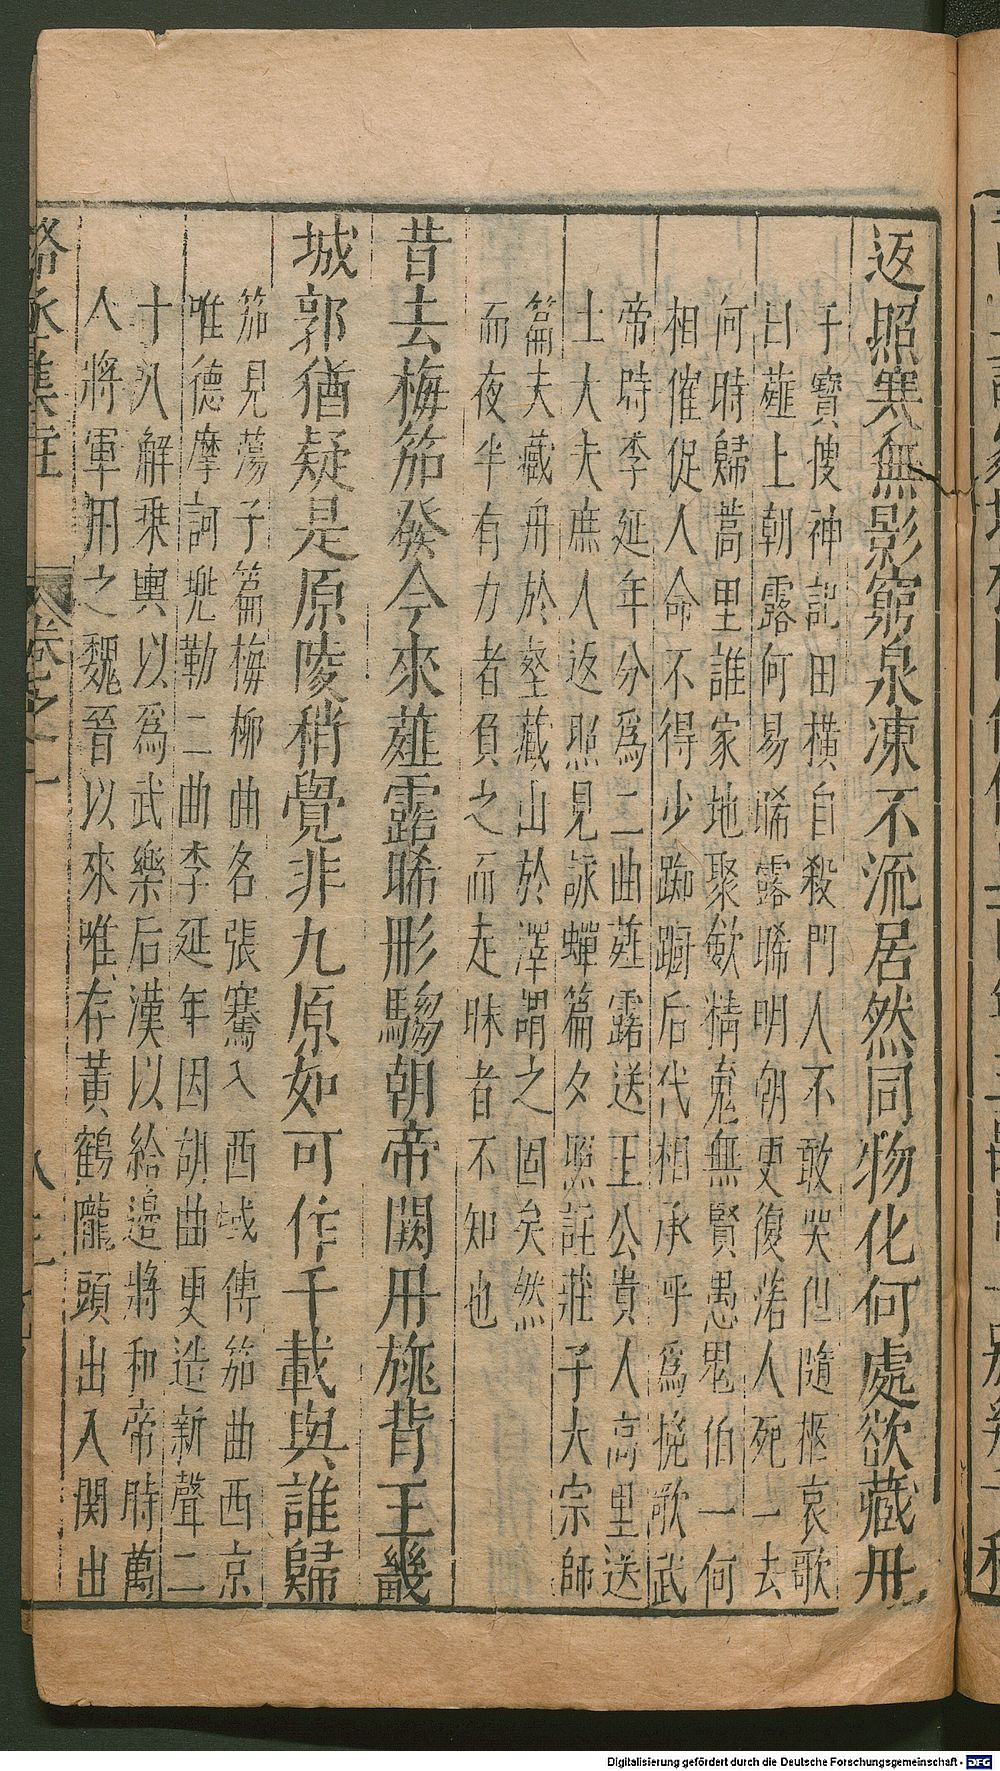 返照寒無影窮泉凍不流居然同物化何處欲藏舟
干寶搜神記田橫自殺門人不敢哭但隨柩哀歌
曰薤上朝露何易晞露晞明朝更復落人死一去
何時歸蒿里誰家地聚斂精䰟無賢愚鬼伯一何
相催促人命不得少踟蹰后代相承乎爲挽歌武
帝時李延年分爲二曲薤露送王公貴人高里送
士大夫庶人返照見詠蟬篇夕照註莊子大宗師
篇夫藏舟於壑藏山於澤謂之固矣然
而夜半有力者負之而走昧者不知也
昔去梅笳發今來薤露晞形騶朝帝闕丹旐背王畿
城郭猶疑是原陵稍覺非九原如可作千載與誰歸
笳見蕩子篇梅柳曲名張騫入西域傳笳曲西京
唯德摩訶兠勒二曲李延年因胡曲更造新聲二
十八解乘輿以爲武樂后漢以給邊將和帝時萬
人將軍用之魏晉以來唯存黃鶴隴頭出入関出
駱丞集註 卷之二
Digitalisierung gefördert durch die Deutsche Forschungsgemeinschaft - DFG